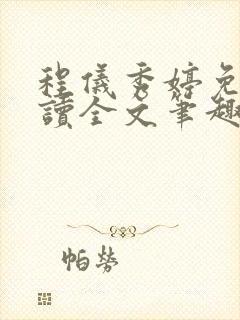 程儀秀婷免
讀全文筆趣
帕勞